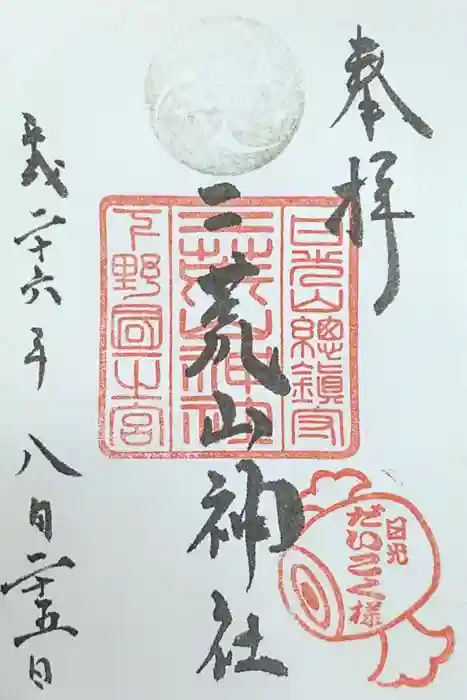 奉拝
日光山總鎮守
二荒山神社
下野國一宮
二荒山神社
日光
だいこく様
平成二十六年八月二十五日